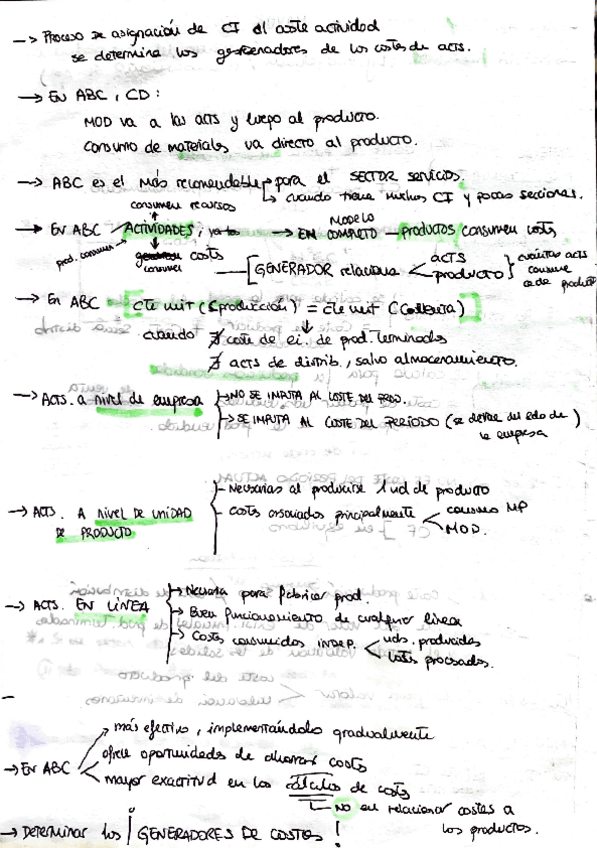 → Proceso de asignación de CI al coste actividad
se determina los generadores de los costes de acts.
→ En ABC, CD:
MOD va a las acts y luego al producto.
Consumo de materiales va directo al producto.
→ ABC es el más recomendable → para el SECTOR SERVICIOS.
↳ cuando tiene muchos CI y pocas secciones.
consumen recursos
→ En ABC ACTIVIDADES, → EN MODELO COMPLETO — productos consumen costs
prod. consumen
consumen costs
[GENERADOR relaciona < acts
producto } cuántas acts consume cada producto
→ En ABC [cte unit (producción) = cte unit ( )]
cuando ∄ coste de ei. de prod. terminados
∄ acts de distrib., salvo almacenamiento.
→ Acts. a nivel de empresa → NO SE IMPUTA AL COSTE DEL PROD.
→ SE IMPUTA AL COSTE DEL PERÍODO (se detrae del edo de la empresa)
→ Acts. A NIVEL DE UNIDAD DE PRODUCTO
- Necesarias al producirse 1 ud de producto
- Costes asociados principalmente < consumo MP
MOD.
→ ACTS. EN LÍNEA → Necesaria para fabricar prod.
→ Buen funcionamiento de cualquier línea
→ Costes consumidos indep. < uds. producidas
lotes procesados.
→ En ABC
más efectivo, implementándolo gradualmente
ofrece oportunidades de ahorrar costes
mayor exactitud en los cálculos de costs
NO en relacionar costes a los productos.
→ Determinar los ¡GENERADORES DE COSTES!